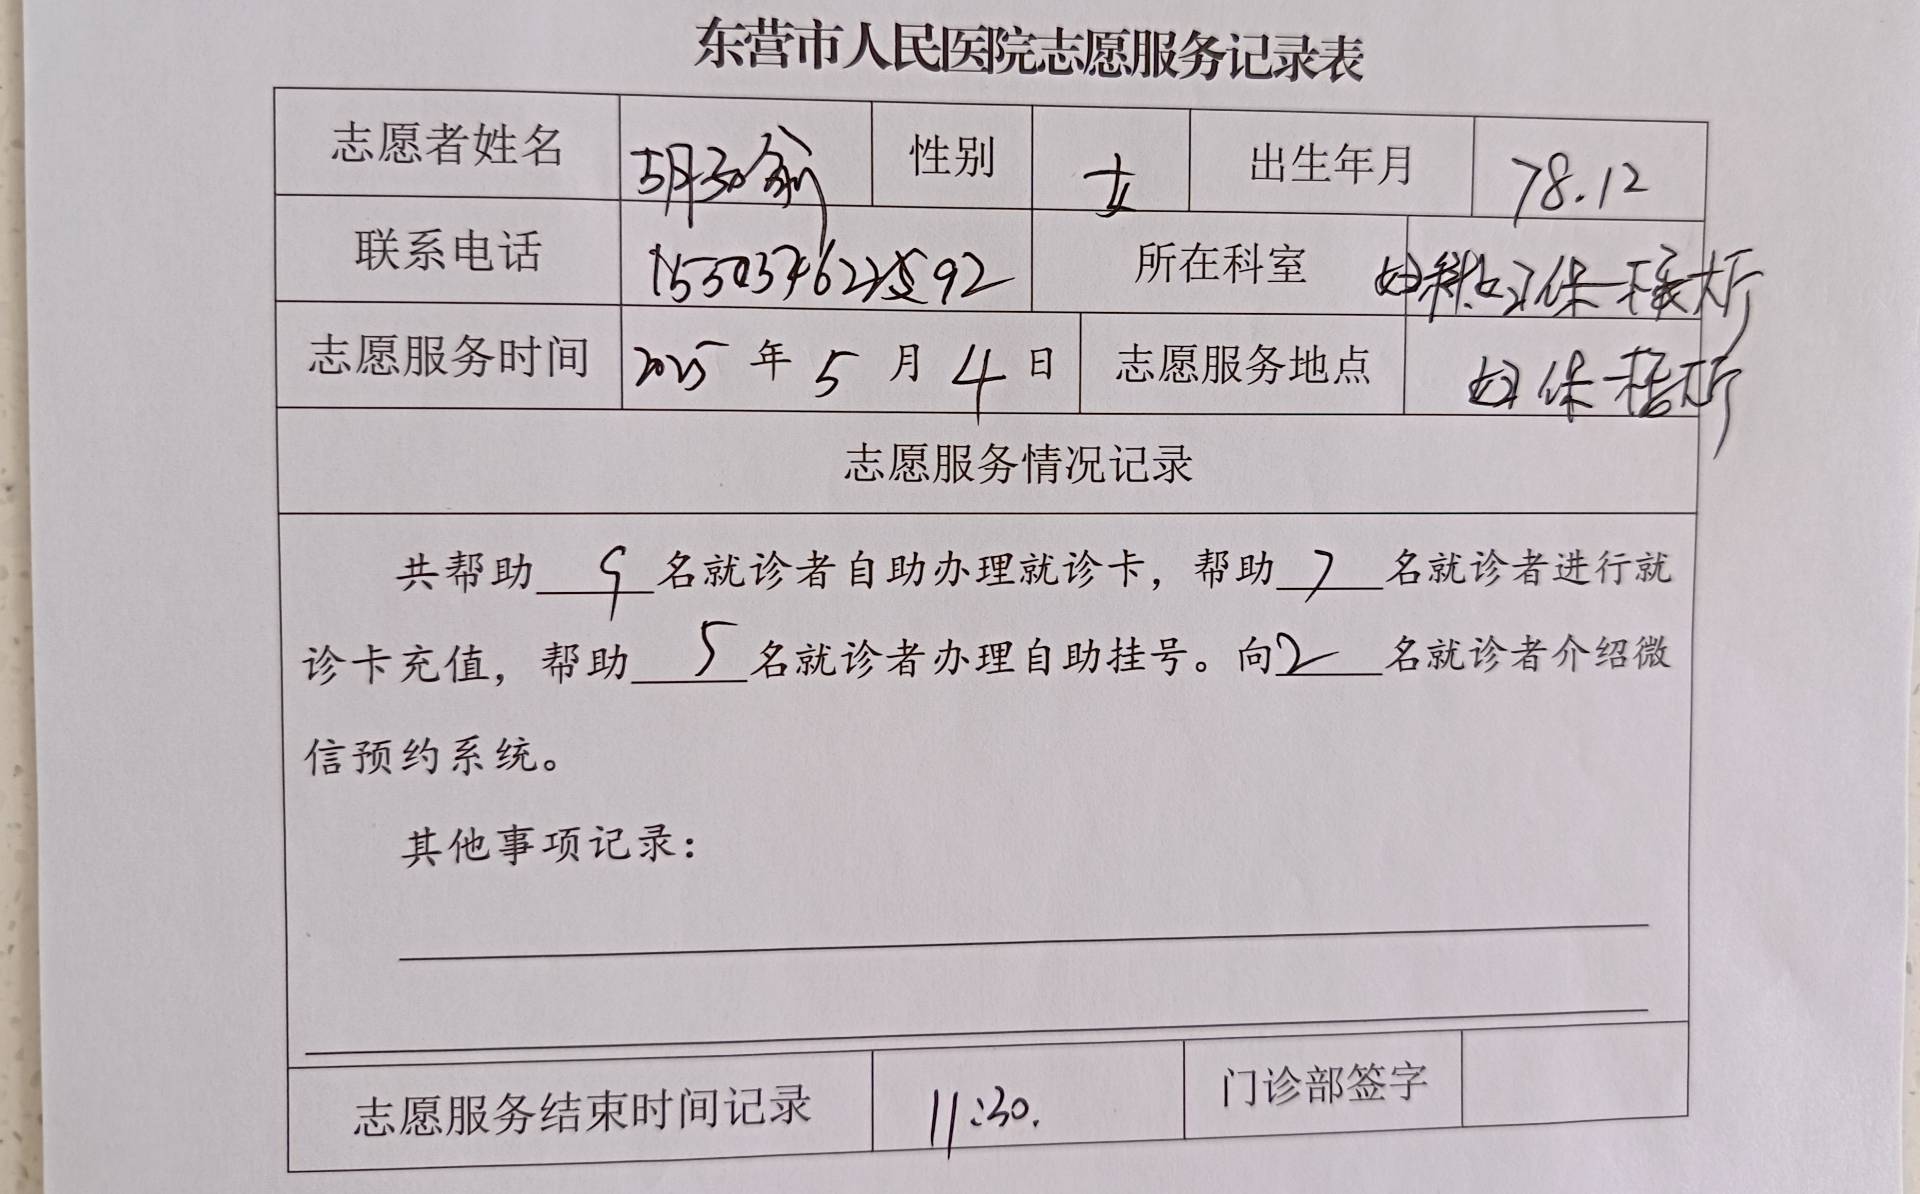 东营市人民医院志愿服务记录表
志愿者姓名 胡 性别 女 出生年月 78.12
联系电话 所在科室 妇保 大厅
志愿服务时间 2025 年 5 月 4 日 志愿服务地点 妇保 大厅
志愿服务情况记录
共帮助 9 名就诊者自助办理就诊卡，帮助 7 名就诊者进行就
诊卡充值，帮助 5 名就诊者办理自助挂号。向 2 名就诊者介绍微
信预约系统。
其他事项记录：
志愿服务结束时间记录 11:30. 门诊部签字